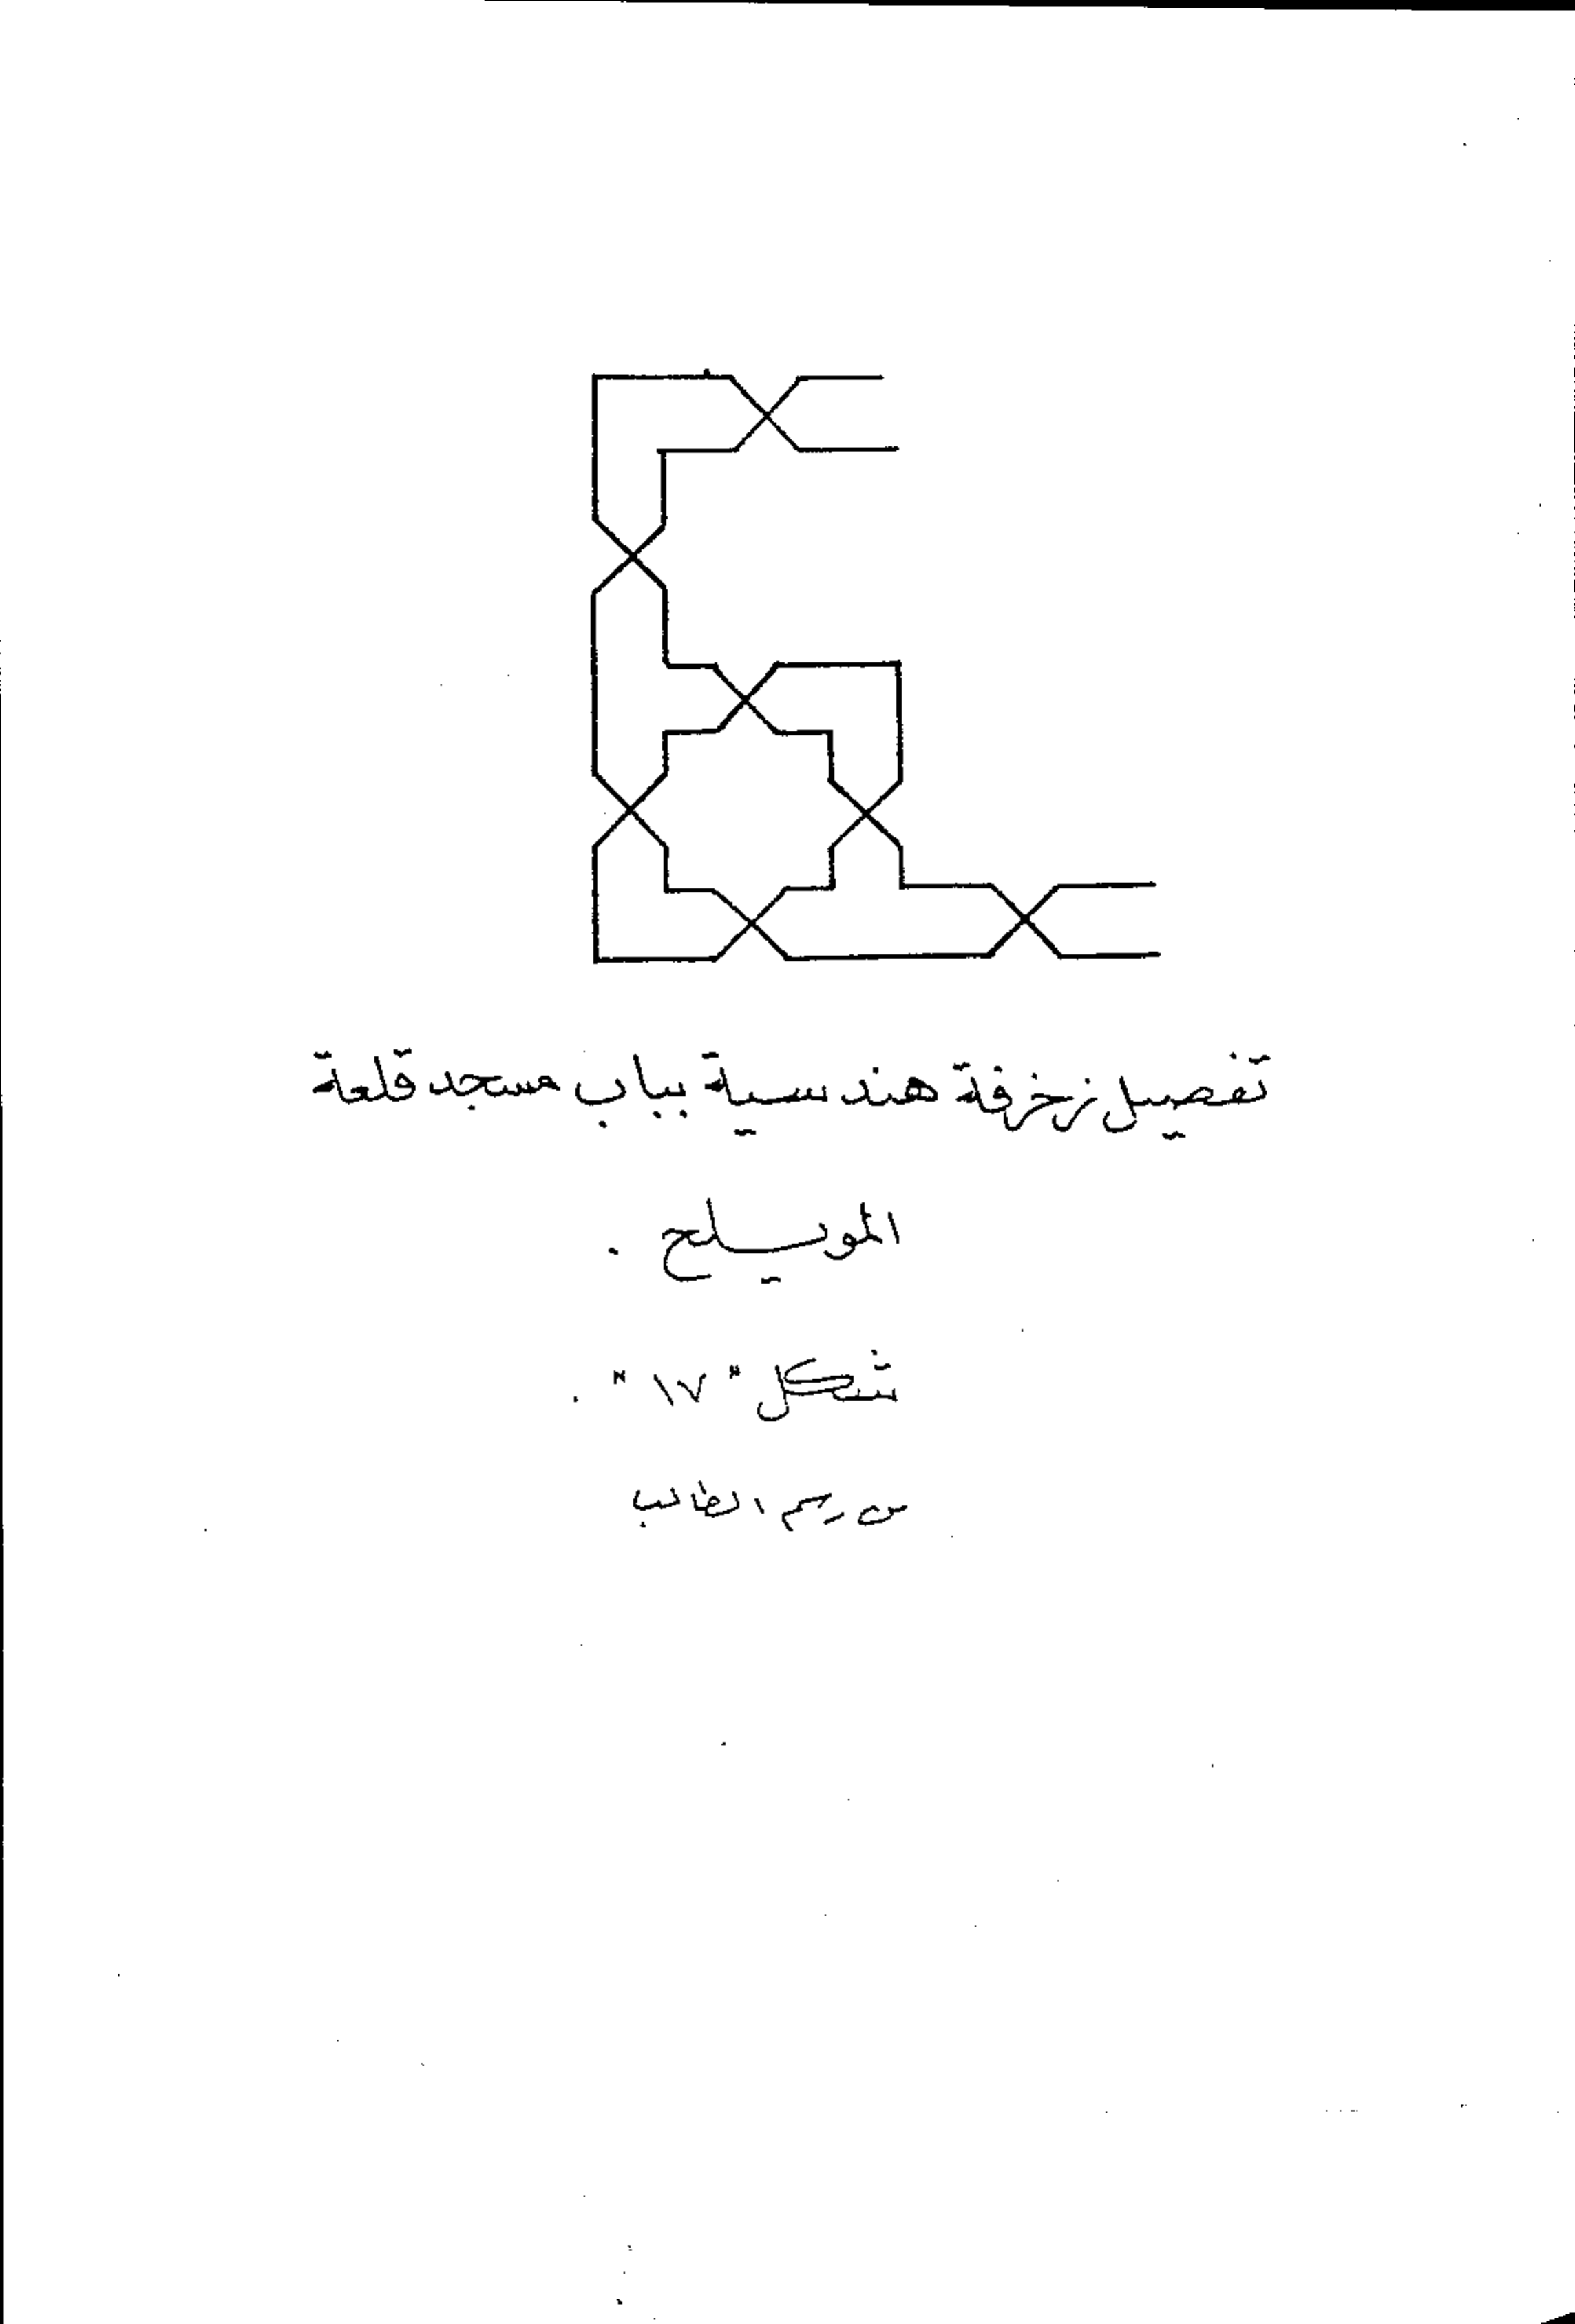 تفصيل زخرفة هندسية بباب مسجد قلعة
المويلح .
شكل " ١٧ " .
من رسم الطالب